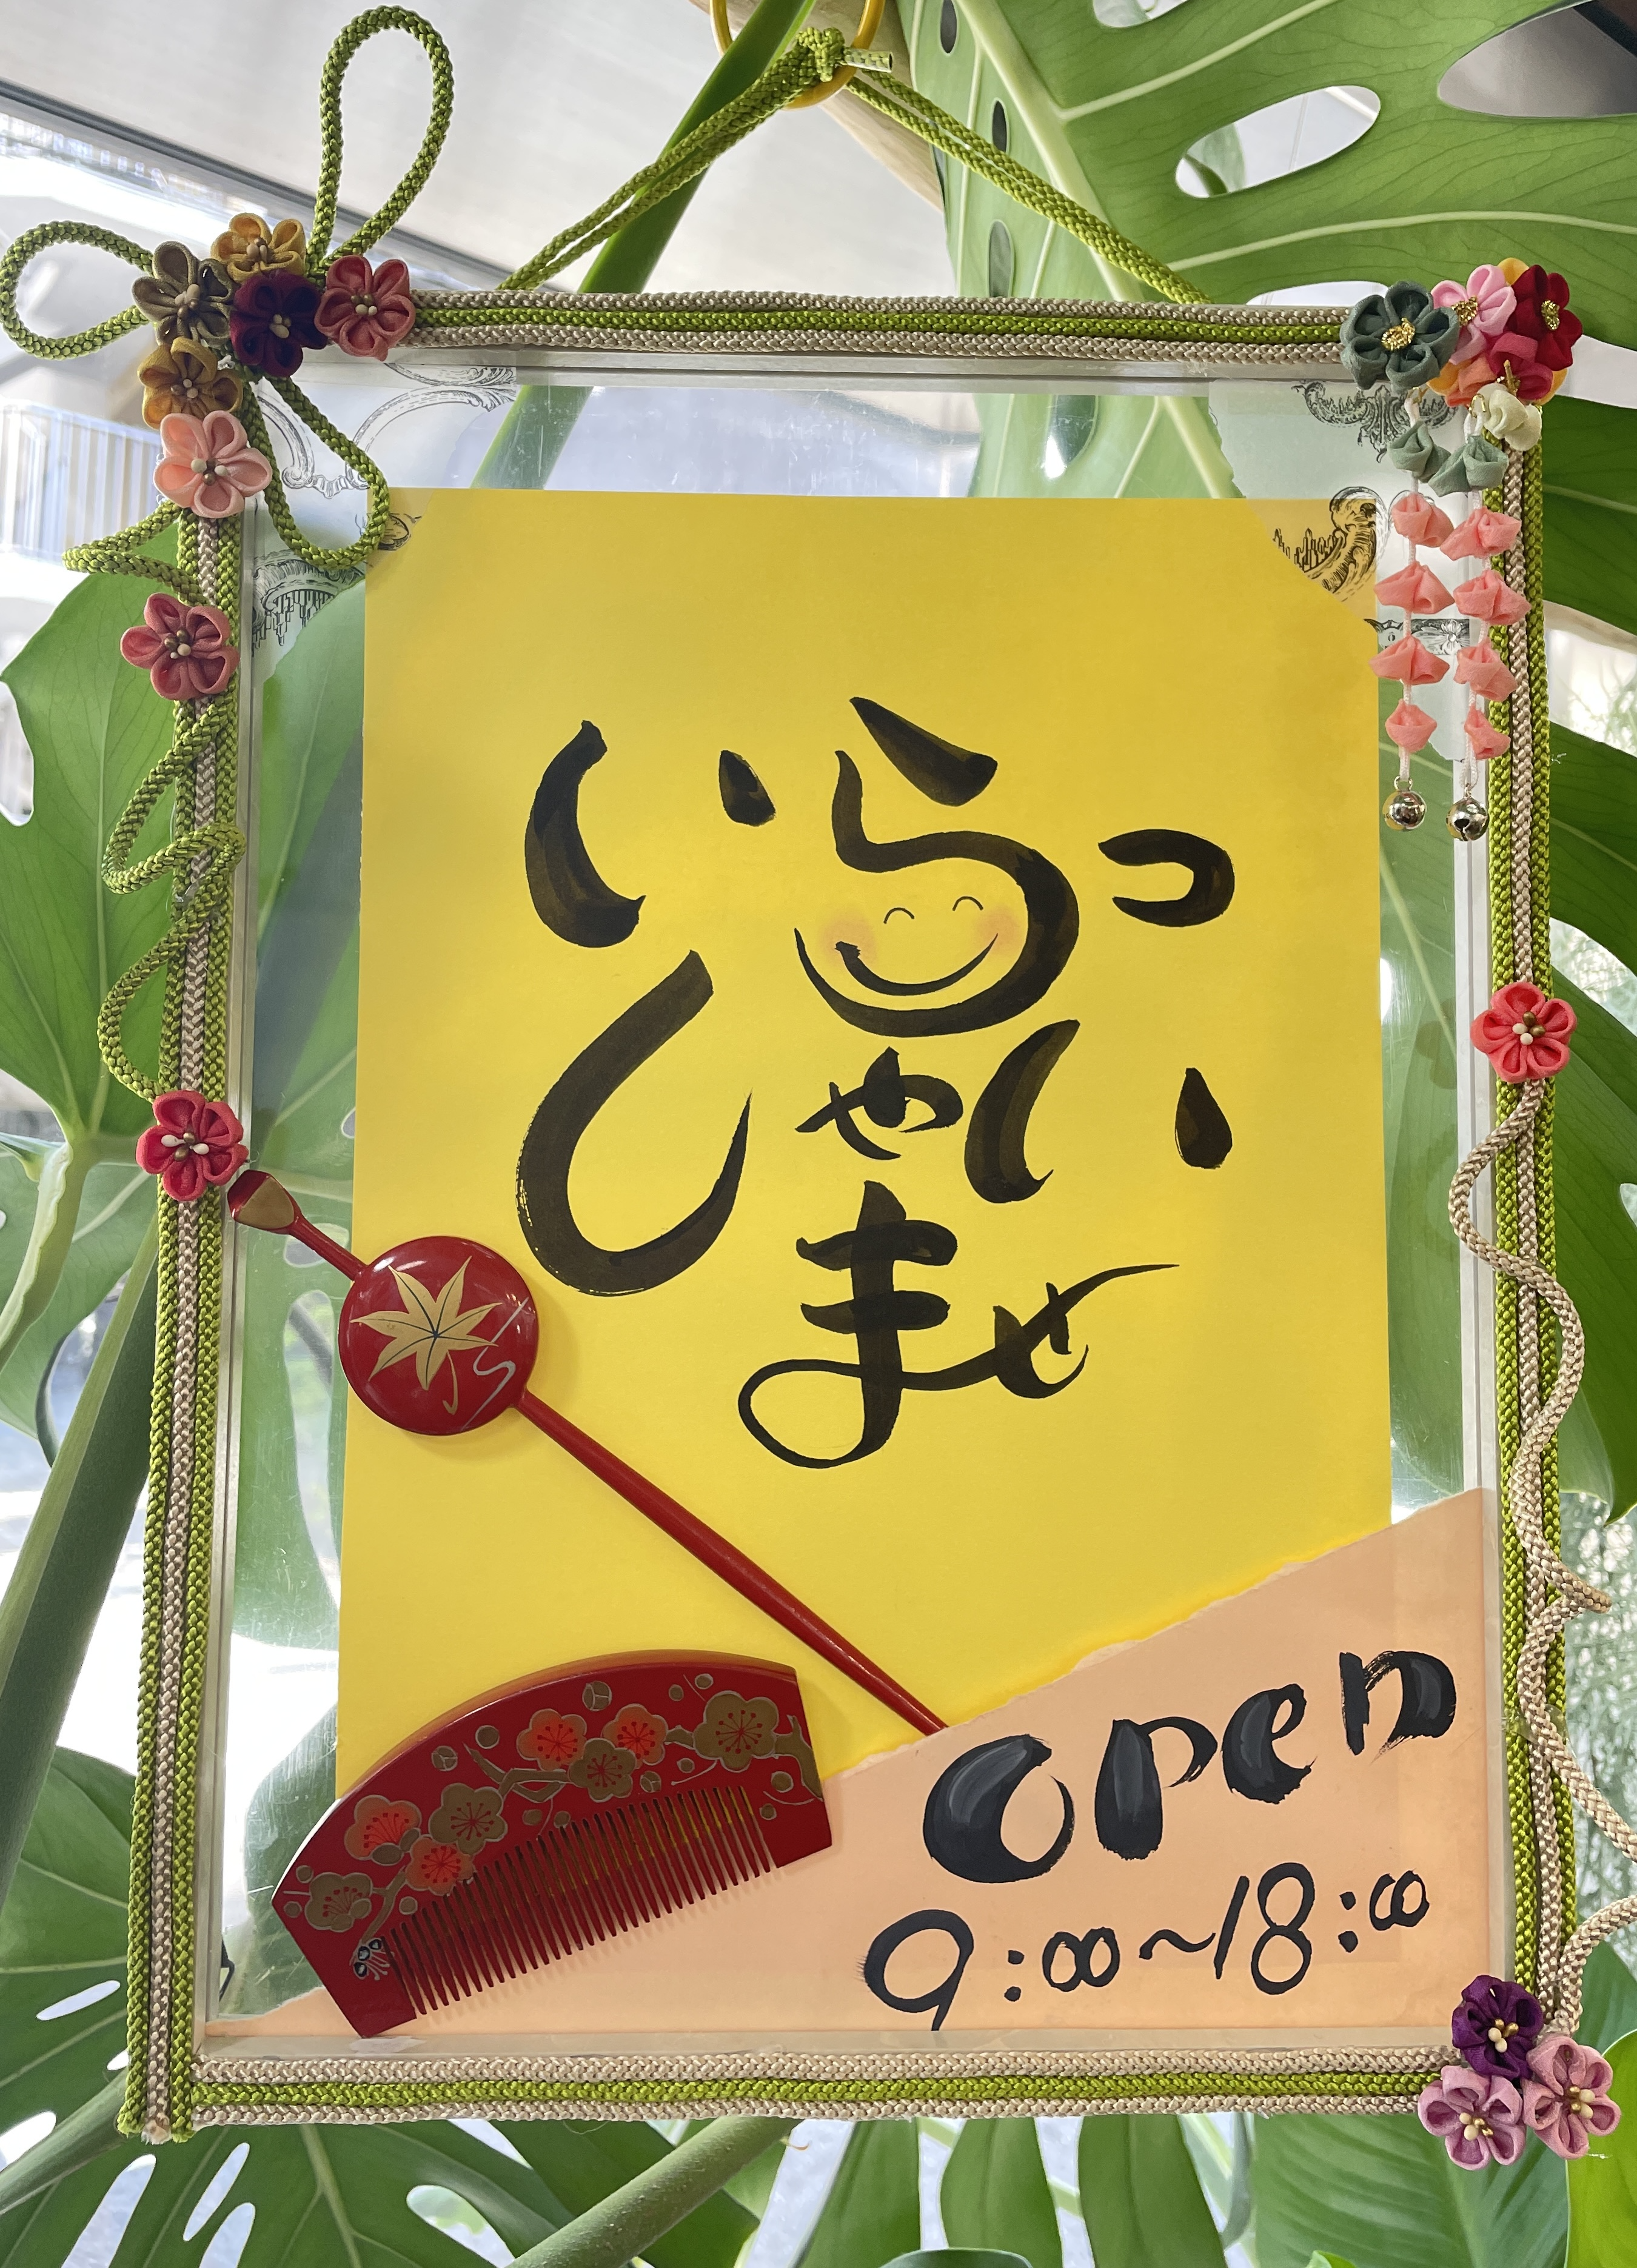 いらっ
しゃい
ませ
open
9:00~18:00